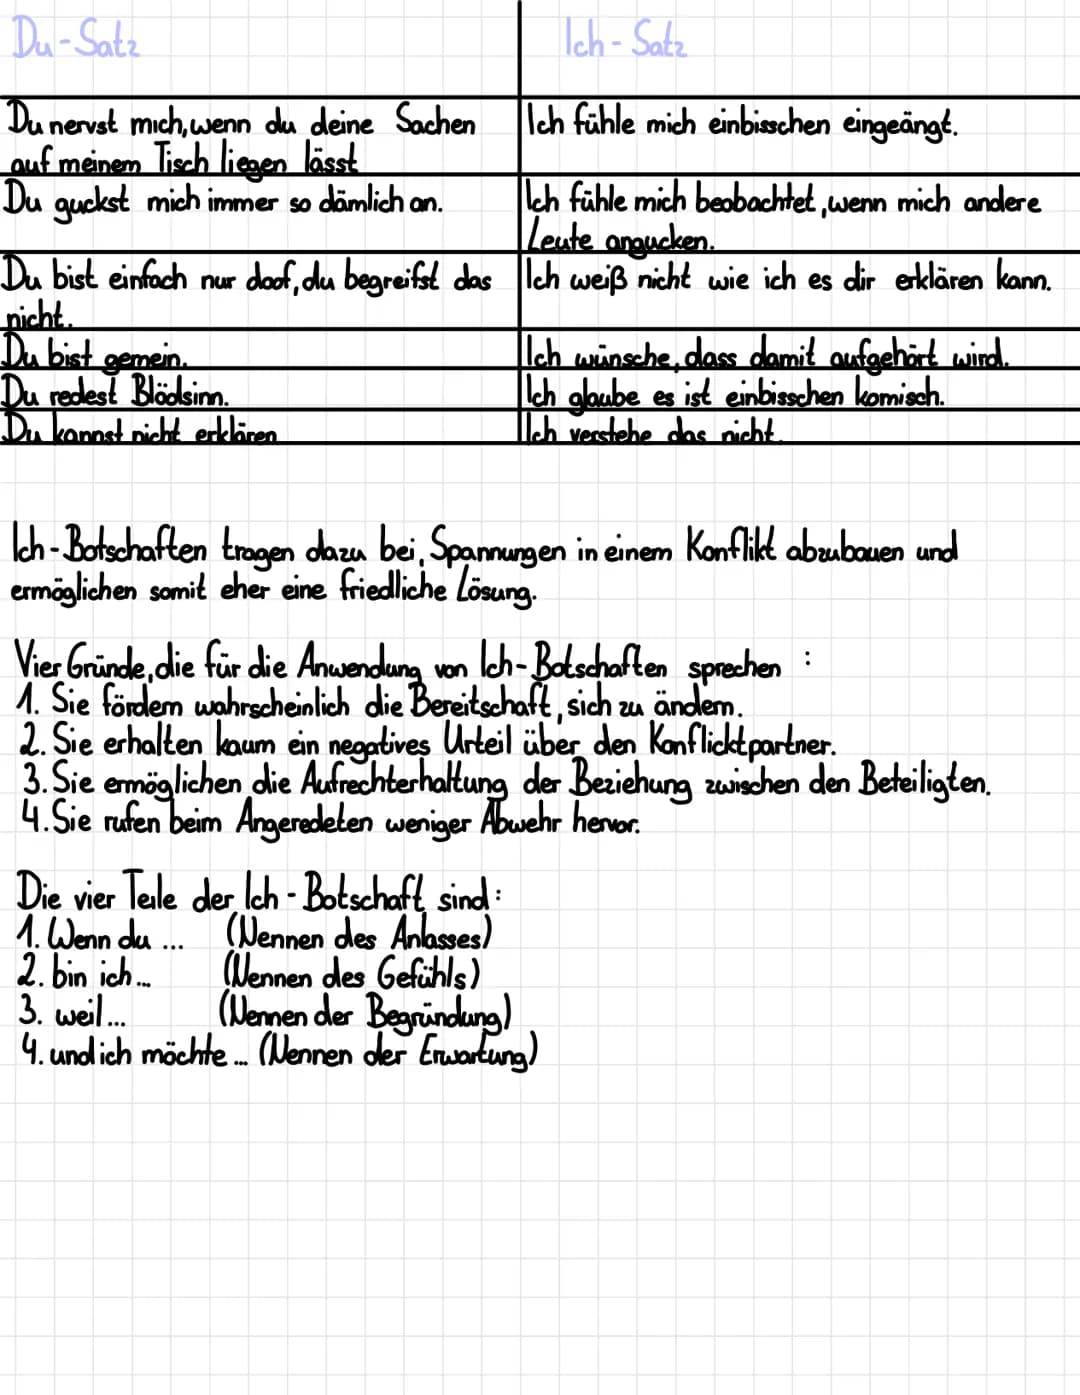 Du-Satz
Ich-Satz
Du nervst mich, wenn du deine Sachen
auf meinem Tisch liegen lässt
Ich fühle mich einbisschen eingeängt.
Du guckst mich immer so dämlich an.
Ich fühle mich beobachtet, wenn mich andere
Leute angucken.
Du bist einfach nur doof, du begreifst das
nicht.
Ich weiß nicht wie ich es dir erklären kann.
Du bist gemein.
Ich wünsche, dass damit aufgehört wird.
Du redest Blödsinn.
Ich glaube es ist einbisschen komisch.
Du kannst nicht erklären
Ich verstehe das nicht.
Ich-Botschaften tragen dazu bei, Spannungen in einem Konflikt abzubauen und
ermöglichen somit eher eine friedliche Lösung.
Vier Gründe, die für die Anwendung von Ich-Botschaften sprechen :
1. Sie fördern wahrscheinlich die Bereitschaft, sich zu ändern.
2. Sie erhalten kaum ein negatives Urteil über den Konflicktpartner.
3. Sie ermöglichen die Aufrechterhaltung der Beziehung zwischen den Beteiligten.
4. Sie rufen beim Angeredeten weniger Abwehr hervor.
Die vier Teile der Ich-Botschaft sind:
1. Wenn du ... (Nennen des Anlasses)
2. bin ich... (Nennen des Gefühls)
3. weil... (Nennen der Begründung)
4. und ich möchte... (Nennen der Erwartung)